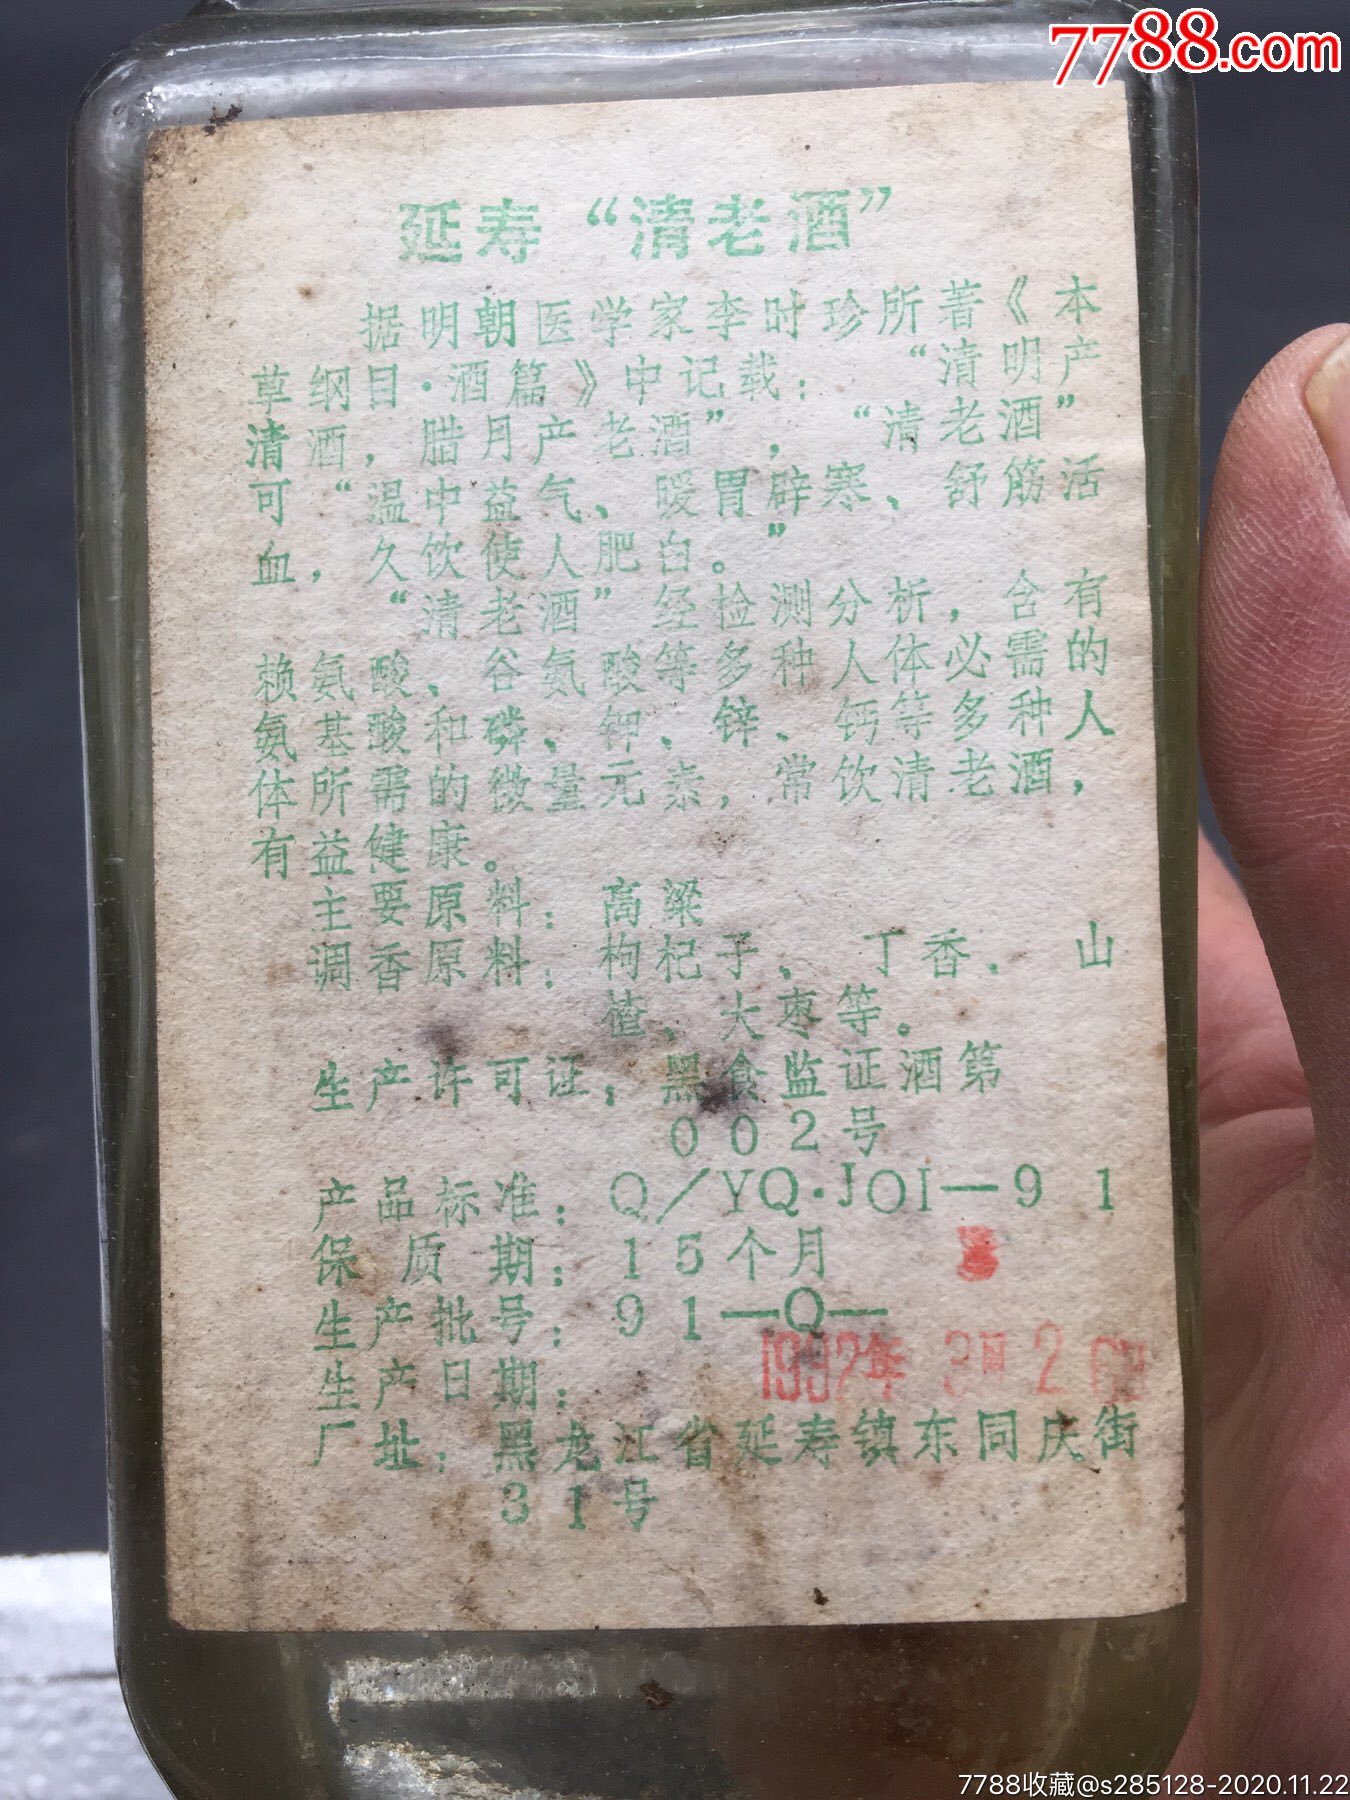 7788.com
延寿“清老酒”
据明朝医学家李时珍所著《本
草纲目·酒篇》中记载：“清明产
清酒，腊月产老酒”，“清老酒”
可“温中益气、暖胃辟寒、舒筋活
血，久饮使人肥白。”
“清老酒”经检测分析，含有
赖氨酸、谷氨酸等多种人体必需的
氨基酸和磷、钾、锌、钙等多种人
体所需的微量元素，常饮清老酒，
有益健康。
主要原料：高粱
调香原料：枸杞子、丁香、山
楂、大枣等。
生产许可证：黑食监证酒第
002号
产品标准：Q/YQ·JOI—91
保质期：15个月
生产批号：91—Q—
生产日期：1992年3月26日
厂址：黑龙江省延寿镇东同庆街
31号
7788收藏@s285128-2020.11.22